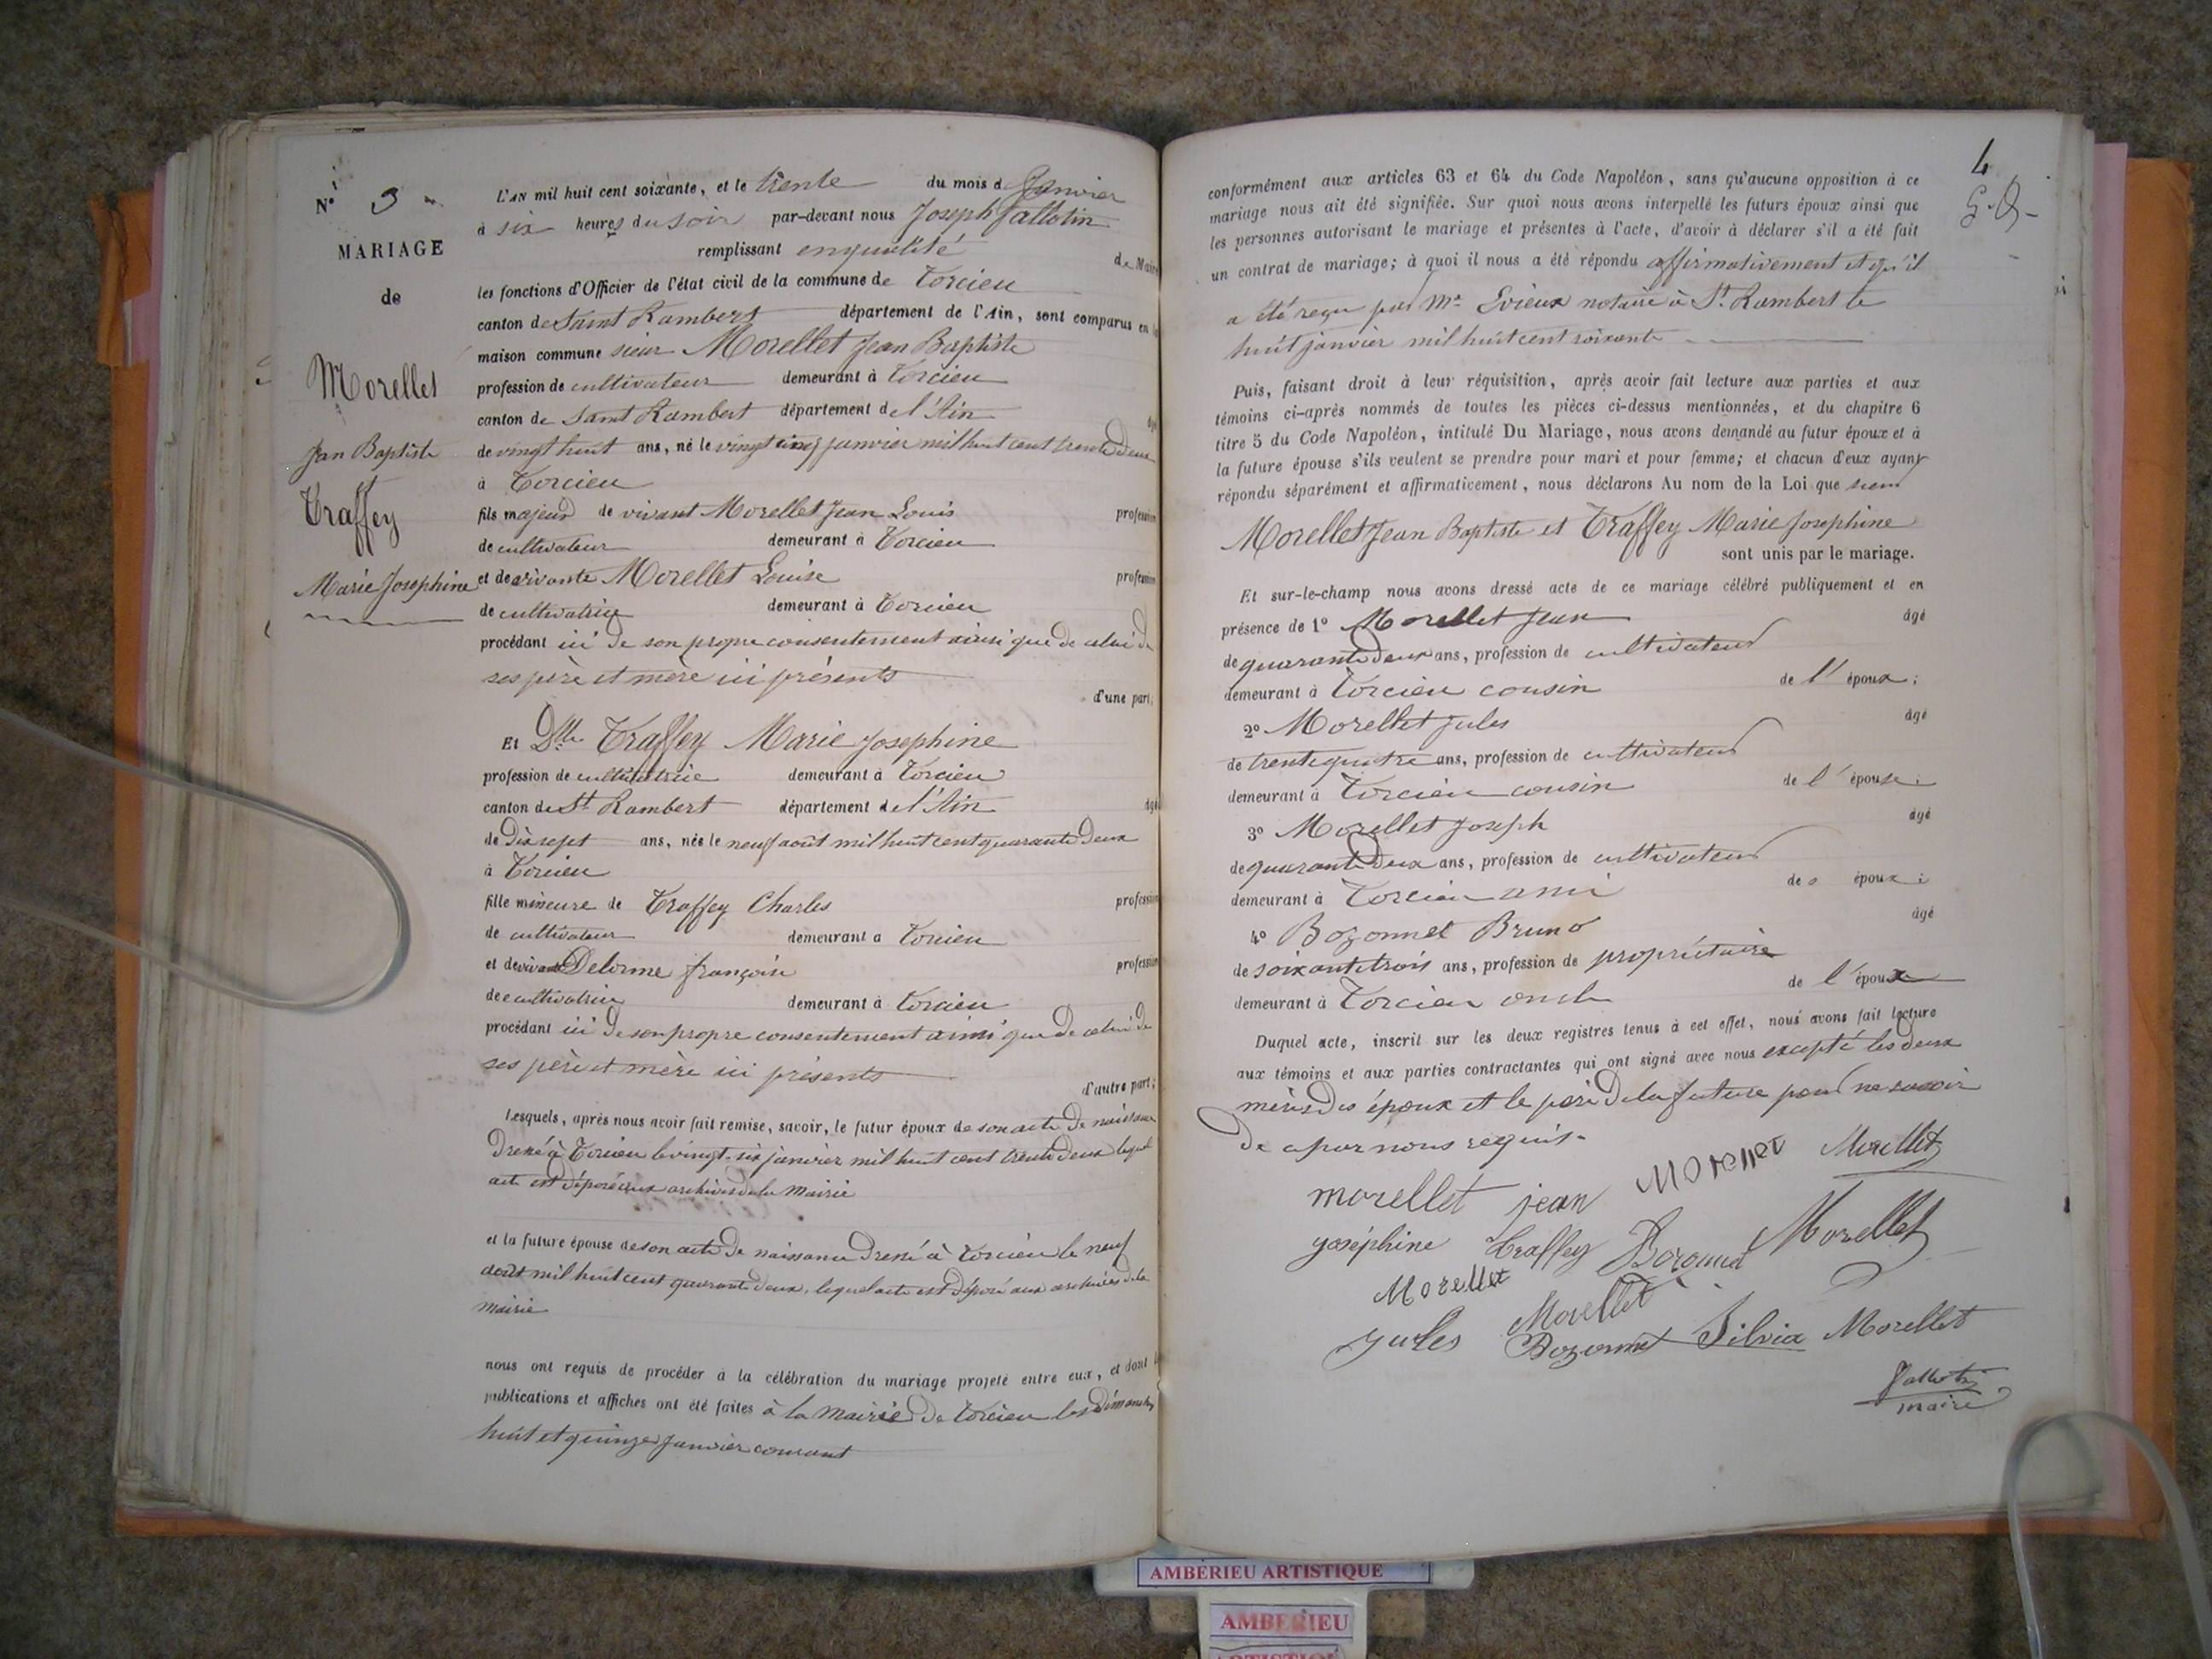 N° 3
MARIAGE
de
Morellet
Jean Baptiste
Traffey
Marie Josephine
L'AN mil huit cent soixante, et le trente du mois d Janvier
à six heures du soir par-devant nous Joseph Jallotin
remplissant en qualité de Maire
les fonctions d'Officier de l'état civil de la commune de Torcieu
canton de Saint Rambert département de l'Ain, sont comparus en la
maison commune sieur Morellet Jean Baptiste
profession de cultivateur demeurant à Torcieu
canton de Saint Rambert département de l'Ain âgé
de vingt huit ans, né le vingt cinq janvier mil huit cent trente deux
à Torcieu
fils majeur de vivant Morellet Jean Louis profession
de cultivateur demeurant à Torcieu
et de vivante Morellet Louise profession
de cultivatrice demeurant à Torcieu
procédant ici de son propre consentement ainsi que de celui de
ses père et mère ici présents
d'une part;
Et Dlle Traffey Marie Josephine
profession de cultivatrice demeurant à Torcieu
canton de St Rambert département de l'Ain âgé
de dix sept ans, née le neuf août mil huit cent quarante deux
à Torcieu
fille mineure de Traffey Charles profession
de cultivateur demeurant a Torcieu
et de vivante Delorme françoise profession
de cultivatrice demeurant à Torcieu
procédant ici de son propre consentement ainsi que de celui de
ses père et mère ici présents
d'autre part;
Lesquels, après nous avoir fait remise, savoir, le futur époux de son acte de naissance
dressé à Torcieu le vingt-six janvier mil huit cent trente deux lequel
acte est déposé aux archives de la mairie
et la future épouse de son acte de naissance dressé à Torcieu le neuf
août mil huit cent quarante deux, lequel acte est déposé aux archives de la
mairie
nous ont requis de procéder à la célébration du mariage projeté entre eux, et dont
publications et affiches ont été faites à la mairie de Torcieu les dimanches
huit et quinze janvier courant
4
conformément aux articles 63 et 64 du Code Napoléon, sans qu'aucune opposition à ce
mariage nous ait été signifiée. Sur quoi nous avons interpellé les futurs époux ainsi que
les personnes autorisant le mariage et présentes à l'acte, d'avoir à déclarer s'il a été fait
un contrat de mariage; à quoi il nous a été répondu affirmativement et qu'il
a été reçu par Me Evieux notaire à St Rambert le
huit janvier mil huit cent soixante
Puis, faisant droit à leur réquisition, après avoir fait lecture aux parties et aux
témoins ci-après nommés de toutes les pièces ci-dessus mentionnées, et du chapitre 6
titre 5 du Code Napoléon, intitulé Du Mariage, nous avons demandé au futur époux et à
la future épouse s'ils veulent se prendre pour mari et pour femme; et chacun d'eux ayant
répondu séparément et affirmativement, nous déclarons Au nom de la Loi que sieur
Morellet Jean Baptiste et Traffey Marie Josephine
sont unis par le mariage.
Et sur-le-champ nous avons dressé acte de ce mariage célébré publiquement et en
présence de 1° Morellet Jean âgé
de quarante deux ans, profession de cultivateur
demeurant à Torcieu cousin de l'époux;
2° Morellet Jules âgé
de trente quatre ans, profession de cultivateur
demeurant à Torcieu cousin de l'épouse;
3° Morellet Joseph âgé
de quarante deux ans, profession de cultivateur
demeurant à Torcieu ami des époux;
4° Bozonnet Bruno âgé
de soixante trois ans, profession de propriétaire
demeurant à Torcieu oncle de l'époux
Duquel acte, inscrit sur les deux registres tenus à cet effet, nous avons fait lecture
aux témoins et aux parties contractantes qui ont signé avec nous excepté les deux
mères des époux et le père de la future pour ne savoir
de ce par nous requis.
morellet jean Morellet Morellet
joséphine traffey Bozonnet Morellet
Morellet
Jules Morellet
Bozonnet Silvia Morellet
Jallotin
maire
AMBÉRIEU ARTISTIQUE
AMBERIEU
ARTISTIQUE